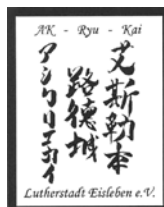 AK - Ryu - Kai
艾斯勒本
路德城
アシワリエカイ
Lutherstadt Eisleben e.V.